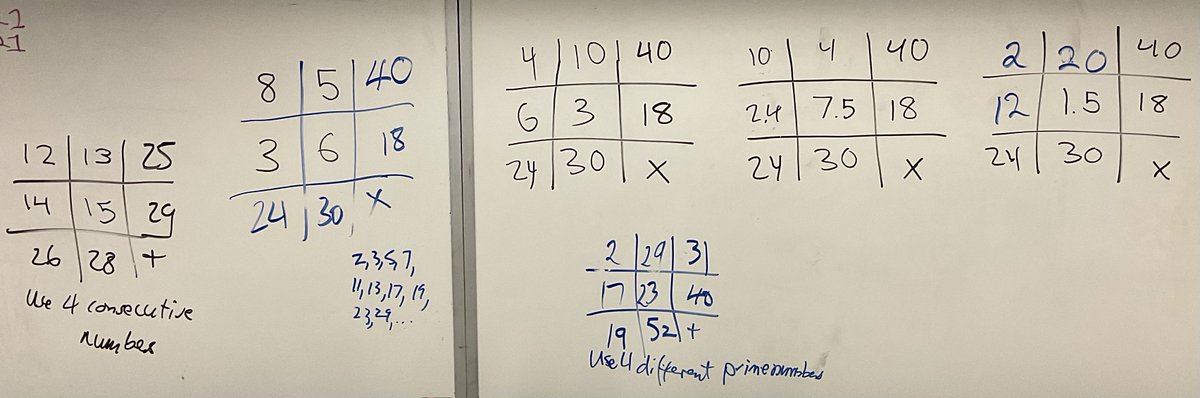 12 | 13 | 25
14 | 15 | 29
26 | 28 | +
Use 4 consecutive
numbers
8 | 5 | 40
3 | 6 | 18
24 | 30 | x
2,3,5,7,
11,13,17,19,
23,29,...
4 | 10 | 40
6 | 3 | 18
24 | 30 | x
10 | 4 | 40
2.4 | 7.5 | 18
24 | 30 | x
2 | 20 | 40
12 | 1.5 | 18
24 | 30 | x
2 | 29 | 31
17 | 23 | 40
19 | 52 | +
Use 4 different prime numbers